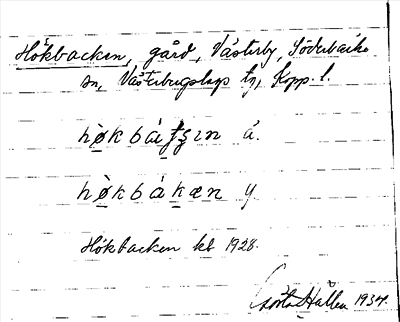 Hökbacken, gård, Västerby, Söderbärke
sn, Västerbergslags tg, Kopp. l.
hø̀kbátʃʂın ä.
hø̀kbákæn y.
Hökbacken kb 1928.
Gösta Hallén 1934.